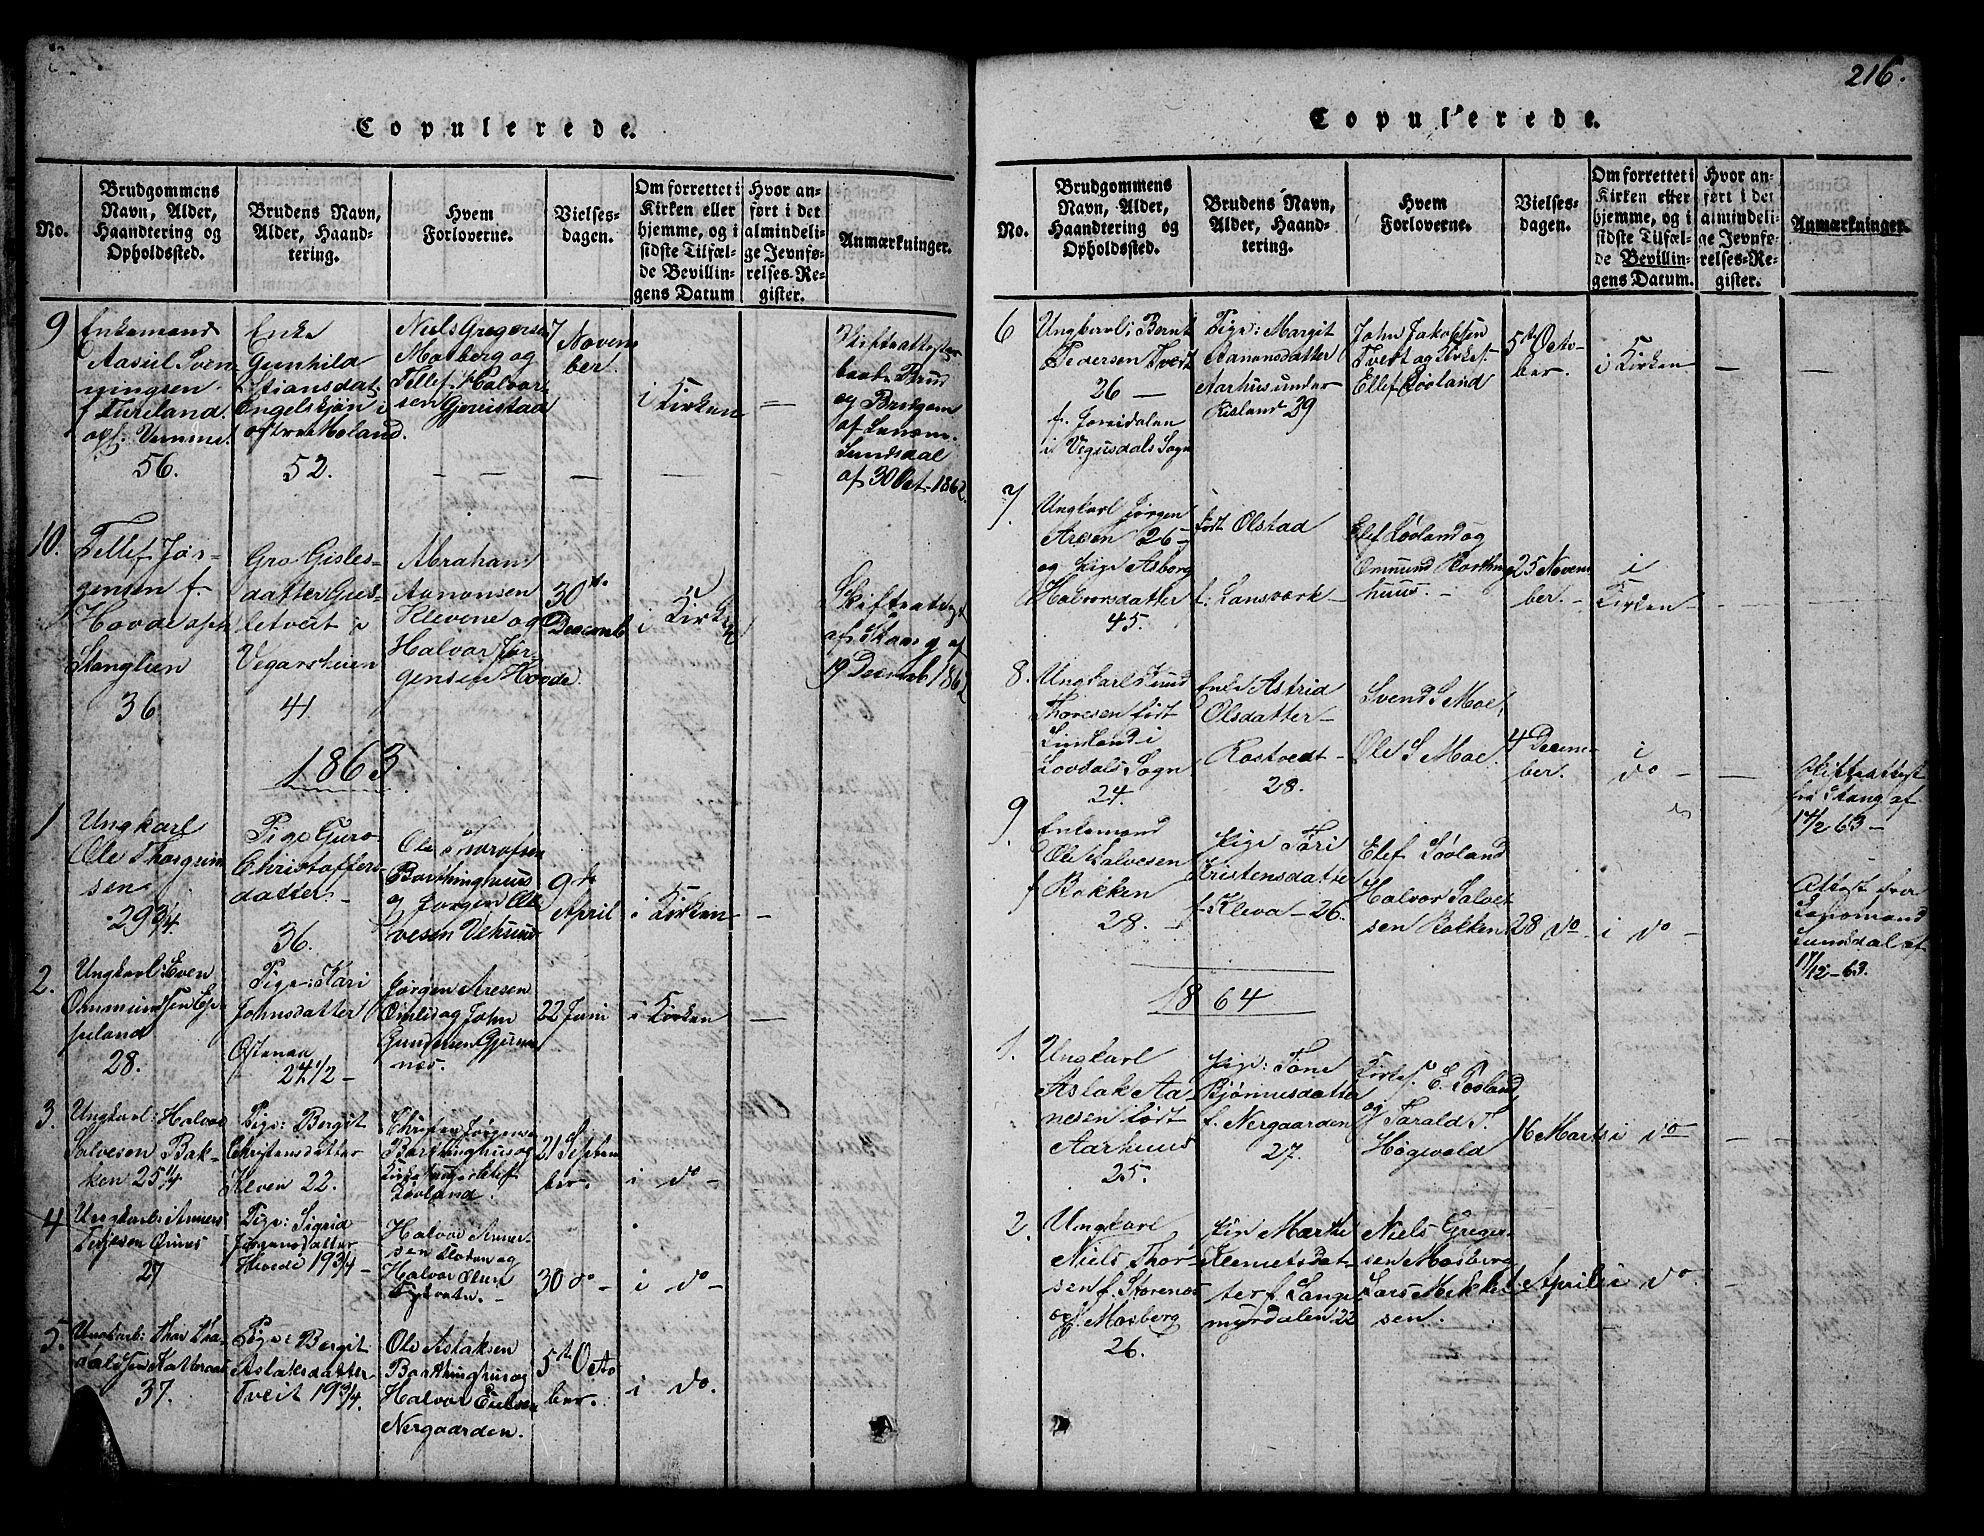 216.
Copulerede.
No.
Brudgommens
Navn, Alder,
Haandtering og
Opholdssted.
Brudens Navn,
Alder, Haand-
tering.
Hvem
Forloverne.
Vielses-
dagen.
Om forrettet i
Kirken eller
hjemme, og i
sidste Tilfæl-
de Bevillin-
gens Datum
Hvor an-
ført i det
almindeli-
ge Jevnfø-
relses-Re-
gister.
Anmærkninger.
9
Enkemand
Aasul Sven
ningsen
f Tureland
56.
Enke
Gunhild
Engelskjøn i
52.
Niels Gregersen
Mosberg og
Tellef Halvor
sen Gjerustad
7 Novem
ber.
i Kirken
Skifteattester
baade Brud
og Brudgom
af Lensm.
Sundsdal
af 30 Oct. 1862.
10.
Tellef Jør-
gensen f.
Hovde oph
Stanglien
36
Gro Gisles-
datter
Vegarsheien
41.
Abraham
Aanonsen
Klevene og
Halvor Jør-
gensen Hovde.
30te
Decemb
i Kirken
Skifteattest
af Stang af
19 Decemb 1862
1863
1
Ungkarl
Ole Thorgrim
sen
29 3/4.
Pige Guro
Christoffers-
datter
36.
Ole Torafsen
Barthinghuus
og Jørgen Al
vesen
9de
April
i Kirken
2.
Ungkarl: Even
Ommundsen
28.
Pige: Kari
Johnsdatter
Østenaa
27 1/2
Jørgen Aresen
Omlid og John
Gundersen
næs.
22 Juni
i Kirken
3.
Ungkarl: Halvor
Salvesen Bak-
ken 25 1/4
Pige: Bergit
Christensdatter
Kleven 22.
Christen Jørgensen
Barthinghus og
Løvland.
21 Septem
ber.
i do
4
Ungkarl: Anners
Terjesen
27
Pige: Sigrid
Jørgensdatter
Hovde 19 3/4
Halvor Anner
sen Sloten og
Halvor Olsen
30 do
i do
5.
Ungkarl: Thor
37.
Pige: Bergit
Aslaksdatter
Tveit 19 3/4.
Ole Aslaksen
Barthinghus og
Halvor
Nergaarden.
5te Octo
ber.
i do.
Copulerede.
No.
Brudgommens
Navn, Alder,
Haandtering og
Opholdssted.
Brudens Navn,
Alder, Haand-
tering.
Hvem
Forloverne.
Vielses-
dagen.
Om forrettet i
Kirken eller
hjemme, og i
sidste Tilfæl-
de Bevillin-
gens Datum.
Hvor an-
ført i det
almindeli-
ge Jevnfø-
relses-Re-
gister.
Anmærkninger.
6
Ungkarl: Bernt
Pedersen Tvert
26
f. Joreidalen
i Vegusdals Sogn
Pige: Margit
Aanonsdatter
Aarhus under
Risland 29
John Jakobsen
Tvert og Kirkes.
Ellef Løvland
5te Octo-
ber.
i Kirken
7
Ungkarl Jørgen
Aresen 26
og Pige Asborg
Halvorsdatter
45.
født Olstad
f. Lansverk
Elef Løvland og
Ommund Barthing
huus.
25 Novem
ber.
i
Kirken
8.
Ungkarl Knud
Thoresen født
Limland i
Lovdals Sogn
24.
Enke Astrid
Olsdatter
Rostvedt
28.
Svend S Moe,
Ole S Moe.
4 Decem-
ber.
i
do
Skifteattest
fra Stang af
14/2 63
9
Enkemand
Ole Salvesen
f Bakken
28.
Pige Tøri
Kristensdatter
f. Kleva 26.
Elef Løvland
Halvor Salve
sen Bakken
28 do
i do
Attest fra
Lensmand
Sunsdal af
17/12-63.
1864
1.
Ungkarl
Aslak Aa-
nesen født
Aarhuus
25.
Pige: Tone
Bjørnusdatter
f. Nergaarden
27.
Kirkes. E. Løvland
og Tarald T.
Høgevold
16 Marts
i do
2.
Ungkarl
Niels Thor-
sen f. Storenes
op. Mosberg
26.
Pige Marthe
Klemetsdat
ter f. Lange
myrdalen 22
Niels Greger-
sen Mosberg
Lars Mikkel
sen.
1 April
i do